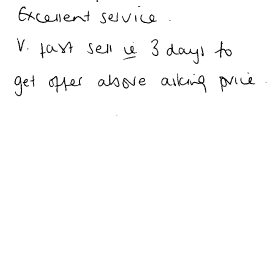 Excellent service.
V. fast sell ie 3 days to
get offer above asking price.